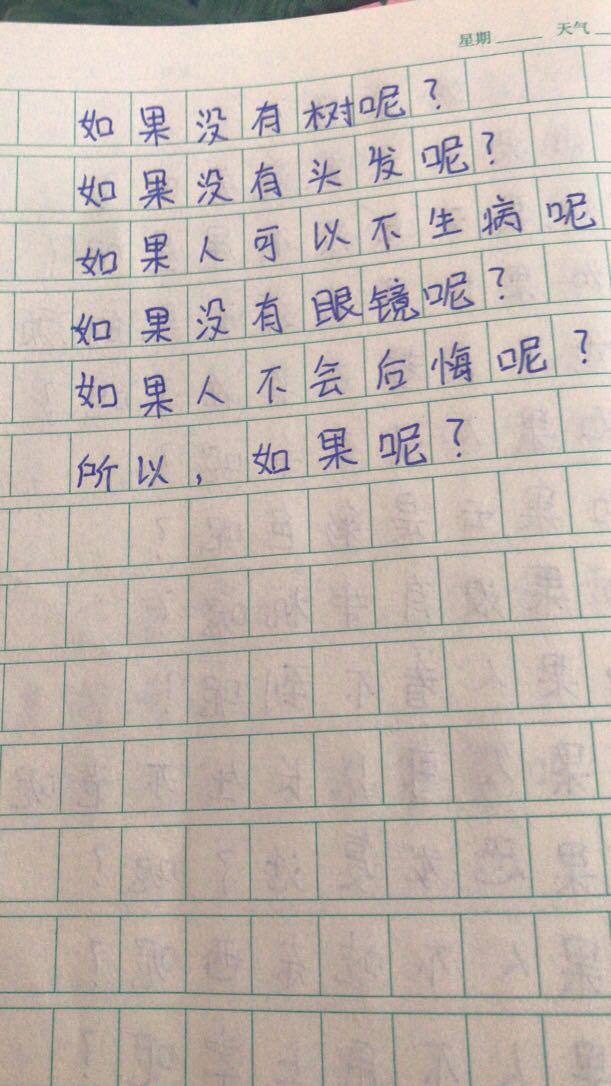 星期 天气
如果没有树呢？
如果没有头发呢？
如果人可以不生病呢
如果没有眼镜呢？
如果人不会后悔呢？
所以，如果呢？